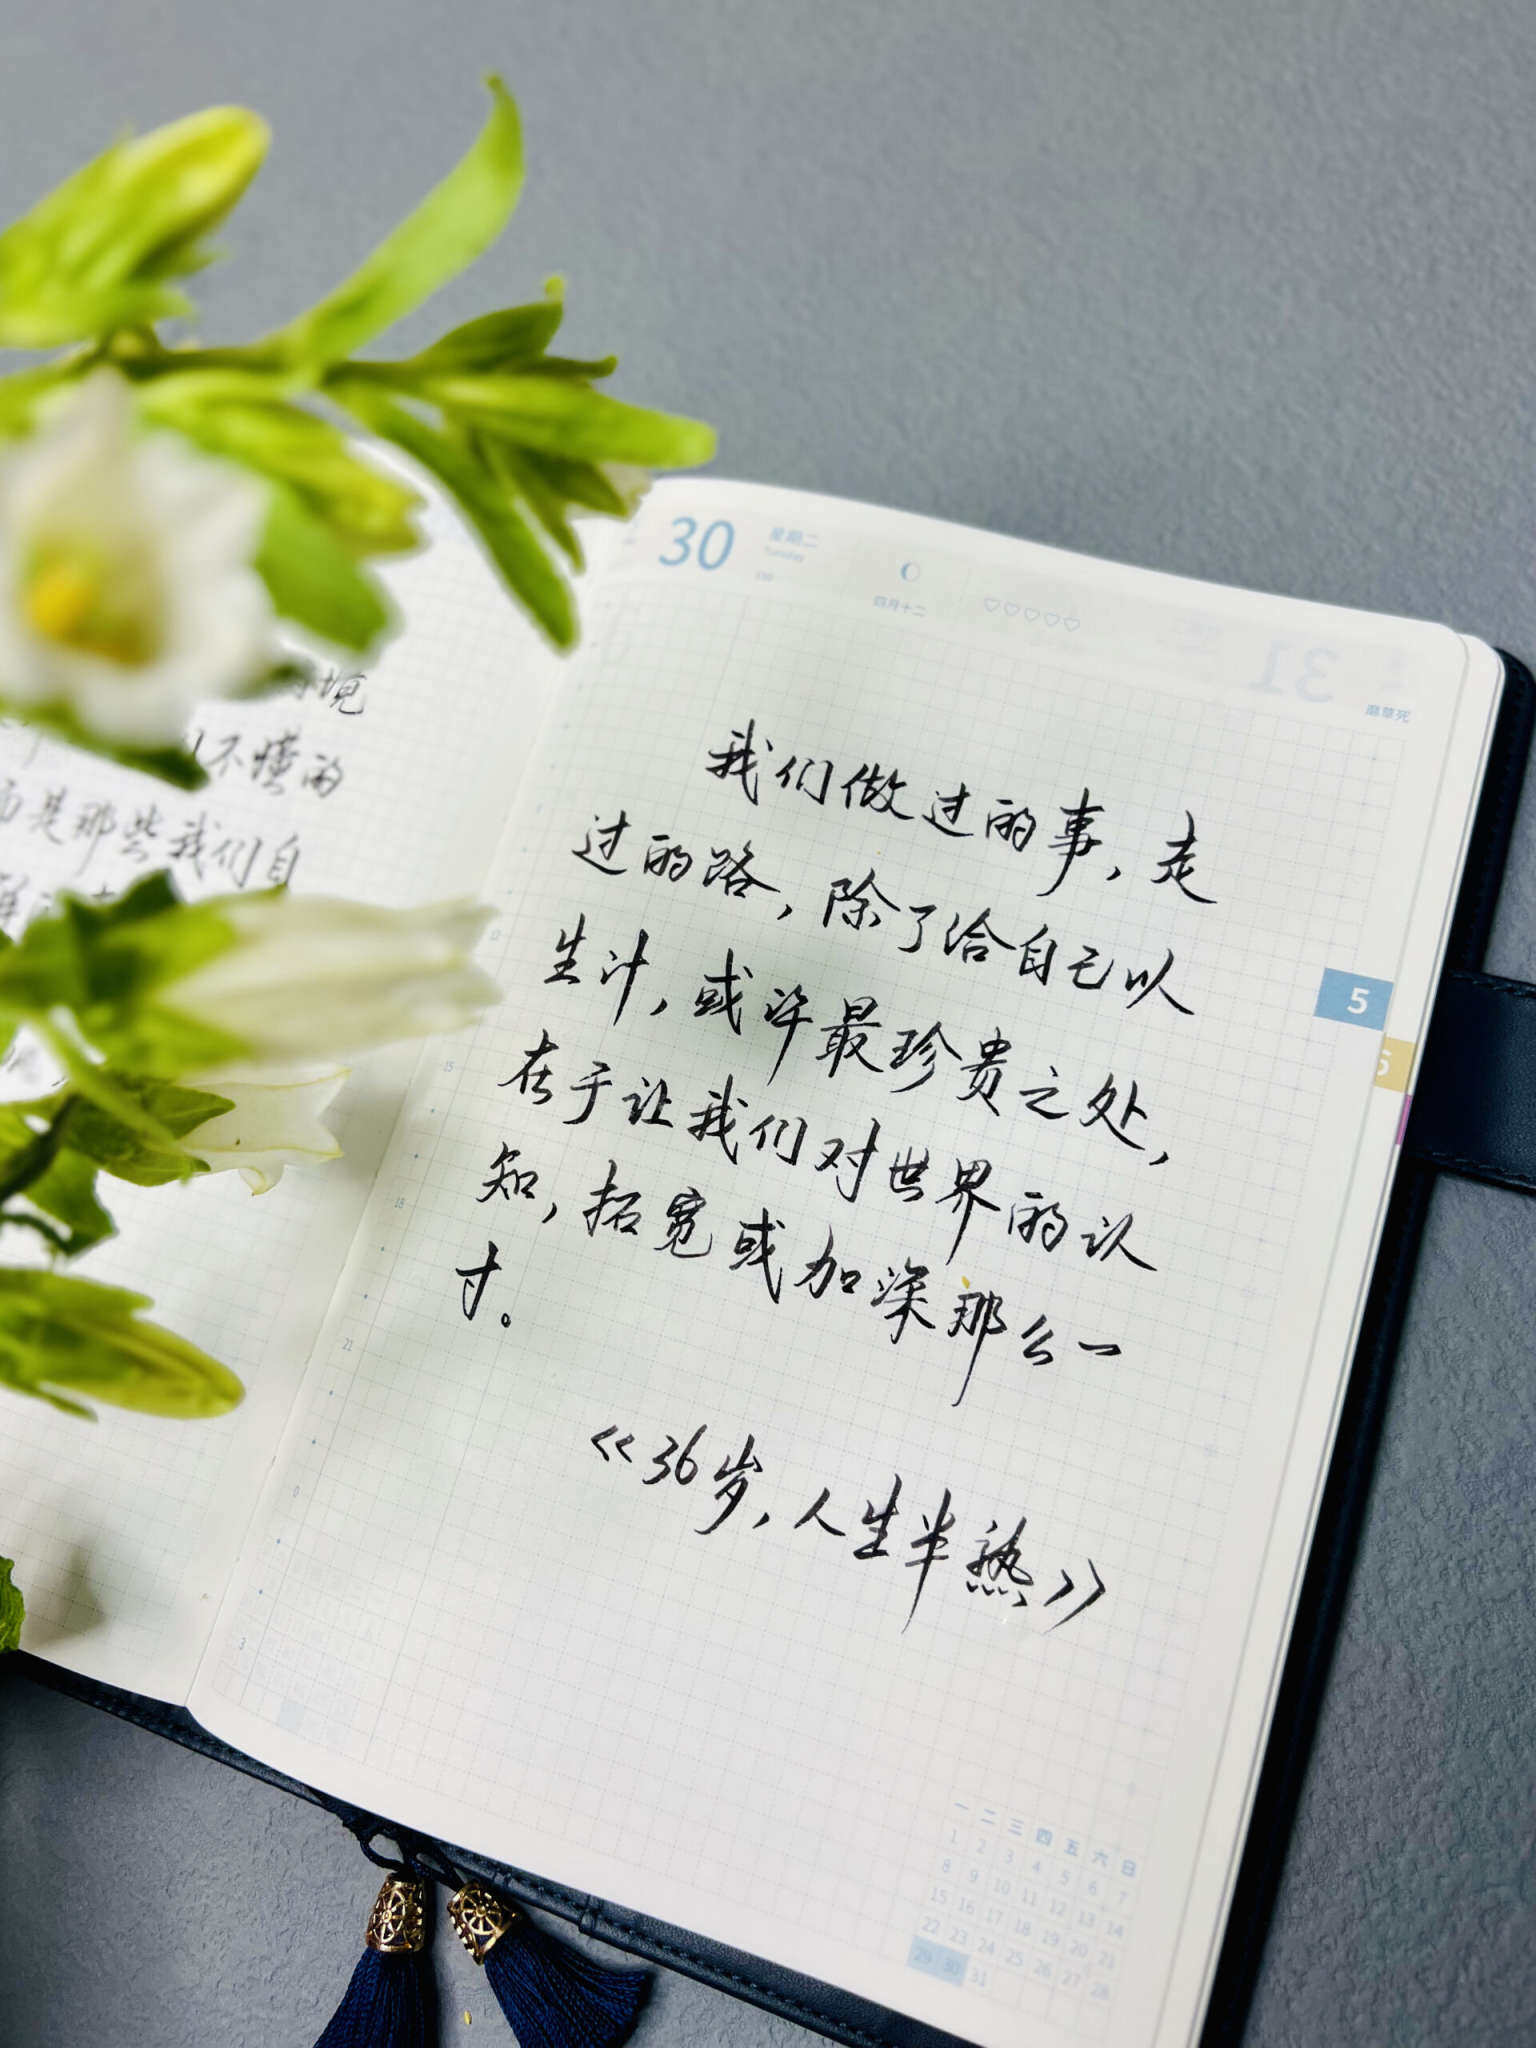 30
星期二
Tuesday
150
四月十二
31
靡草死
我们做过的事，走
过的路，除了给自己以
生计，或许最珍贵之处，
在于让我们对世界的认
知，拓宽或加深那么一
寸。
《36岁，人生半熟》
不懂的
而是那些我们自
5
6
12
15
18
21
0
3
一 二 三 四 五 六 日
1 2 3 4 5 6 7
8 9 10 11 12 13 14
15 16 17 18 19 20 21
22 23 24 25 26 27 28
29 30 31